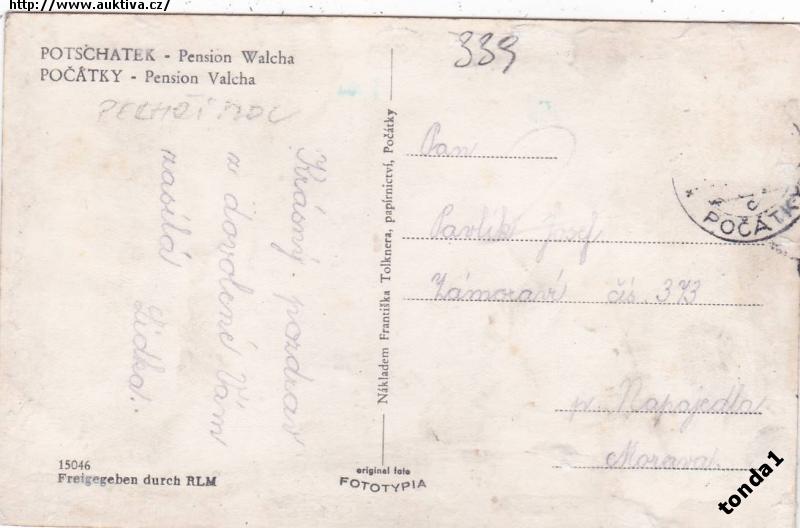 http://www.auktiva.cz/
POTSCHATEK - Pension Walcha
POČÁTKY - Pension Valcha
PELHŘIMOV
Krásný pozdrav
z dovolené Vám
zasílá Lidka.
15046
Freigegeben durch RLM
Nákladem Františka Tolknera, papírnictví, Počátky
original foto
FOTOTYPIA
339
Pan
Pavlík Josef
Zámoraví čís. 373
p. Napajedla
Morava
POČÁTKY
tonda1